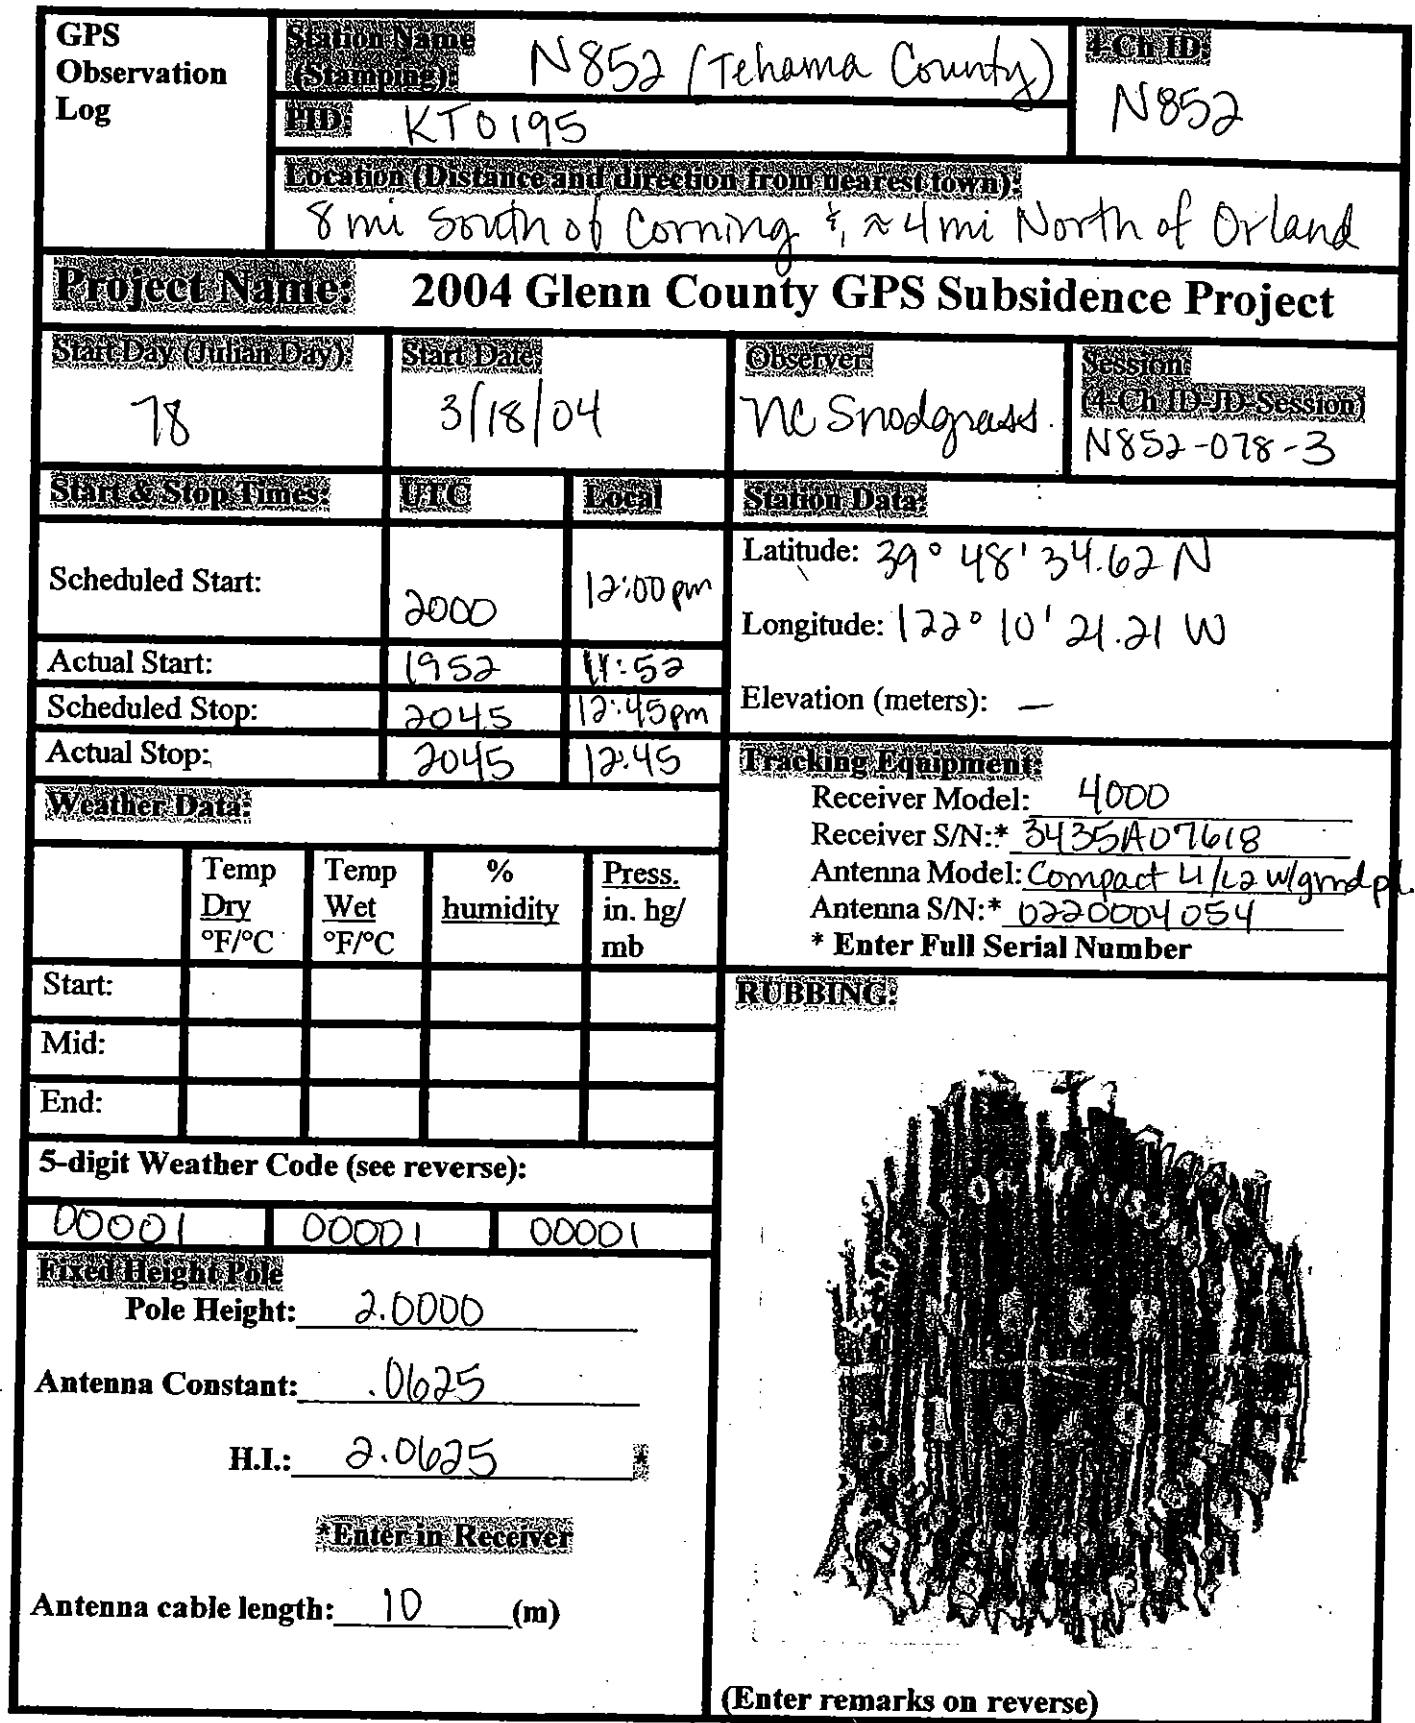 GPS
Observation
Log
Station Name
(Stamping):
N852 (Tehama County)
4-Ch ID:
N852
PID: KT0195
Location (Distance and direction from nearest town):
8 mi South of Corning & ≈4mi North of Orland
Project Name: 2004 Glenn County GPS Subsidence Project
Start Day (Julian Day)
78
Start Date
3/18/04
Observer:
NC Snodgrass.
Session:
(4-Ch ID-JD-Session)
N852-078-3
Start & Stop Times: UTC Local
Scheduled Start: 2000 12:00pm
Actual Start: 1952 11:52
Scheduled Stop: 2045 12:45pm
Actual Stop: 2045 12:45
Station Data:
Latitude: 39° 48' 34.62 N
Longitude: 122° 10' 21.21 W
Elevation (meters): —
Tracking Equipment:
Receiver Model: 4000
Receiver S/N:* 3435A07618
Antenna Model: Compact L1/L2 w/grnd pl.
Antenna S/N:* 0220004054
* Enter Full Serial Number
Weather Data:
Temp
Dry
°F/°C
Temp
Wet
°F/°C
%
humidity
Press.
in. hg/
mb
Start:
Mid:
End:
5-digit Weather Code (see reverse):
00001 00001 00001
Fixed Height Pole
Pole Height: 2.0000
Antenna Constant: .0625
H.I.: 2.0625 *
*Enter in Receiver
Antenna cable length: 10 (m)
RUBBING:
(Enter remarks on reverse)